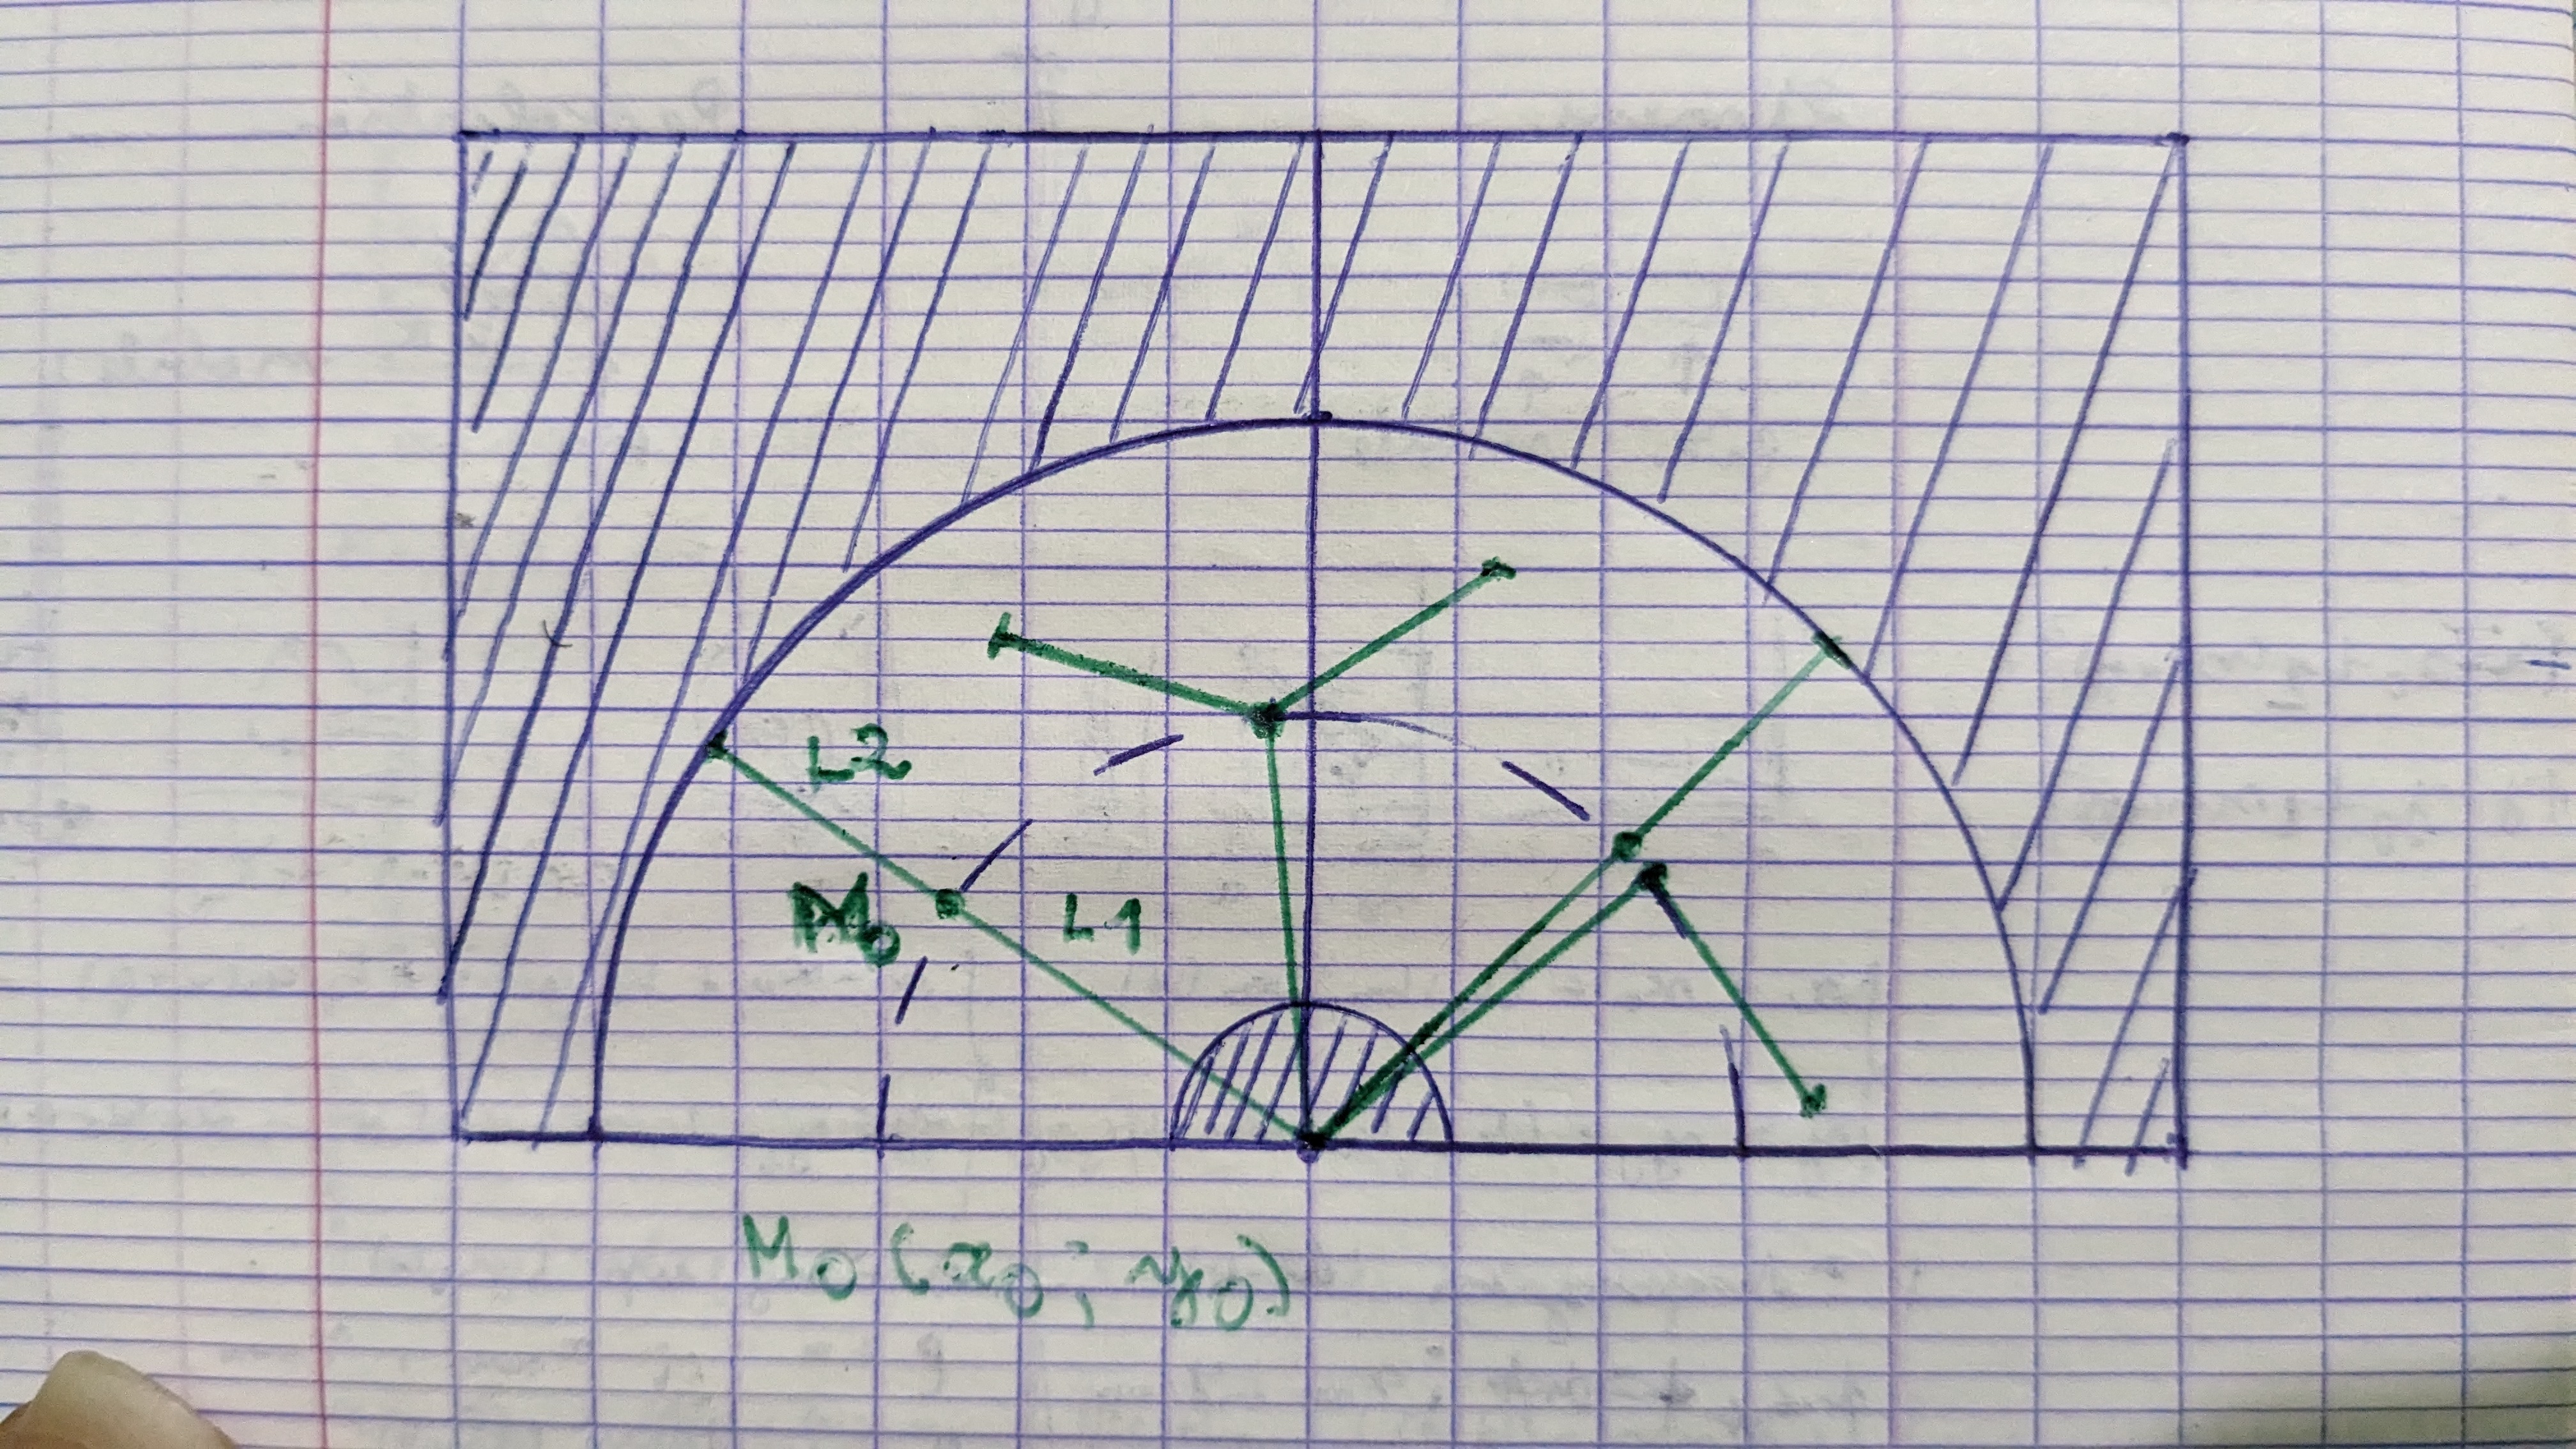 L2
M₀ L1
M₀ (x₀ ; y₀)